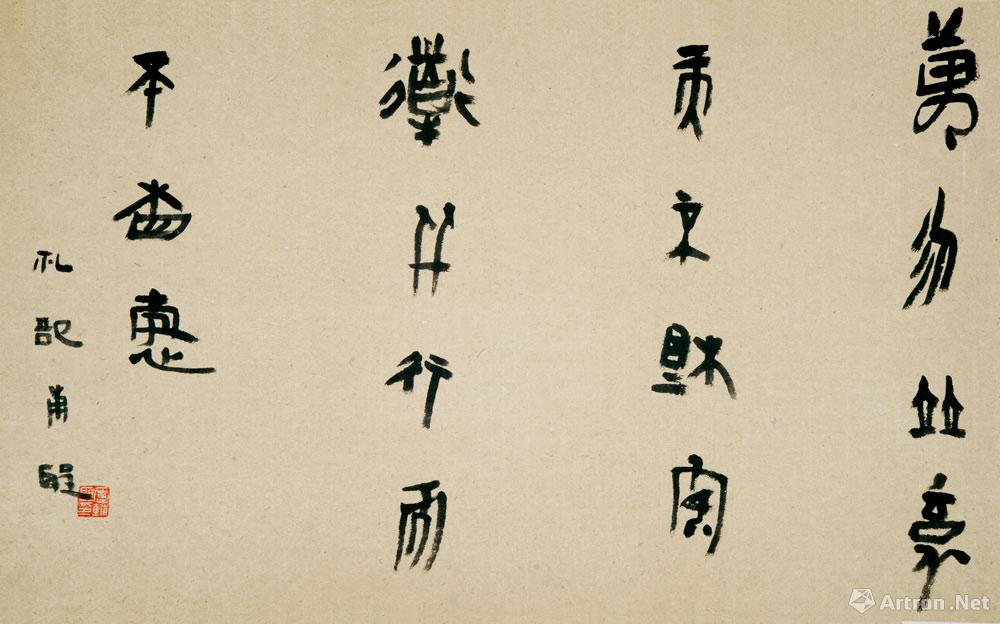 萬勿竝育
而不相害
道并行而
不相悖
礼記
Artron.Net